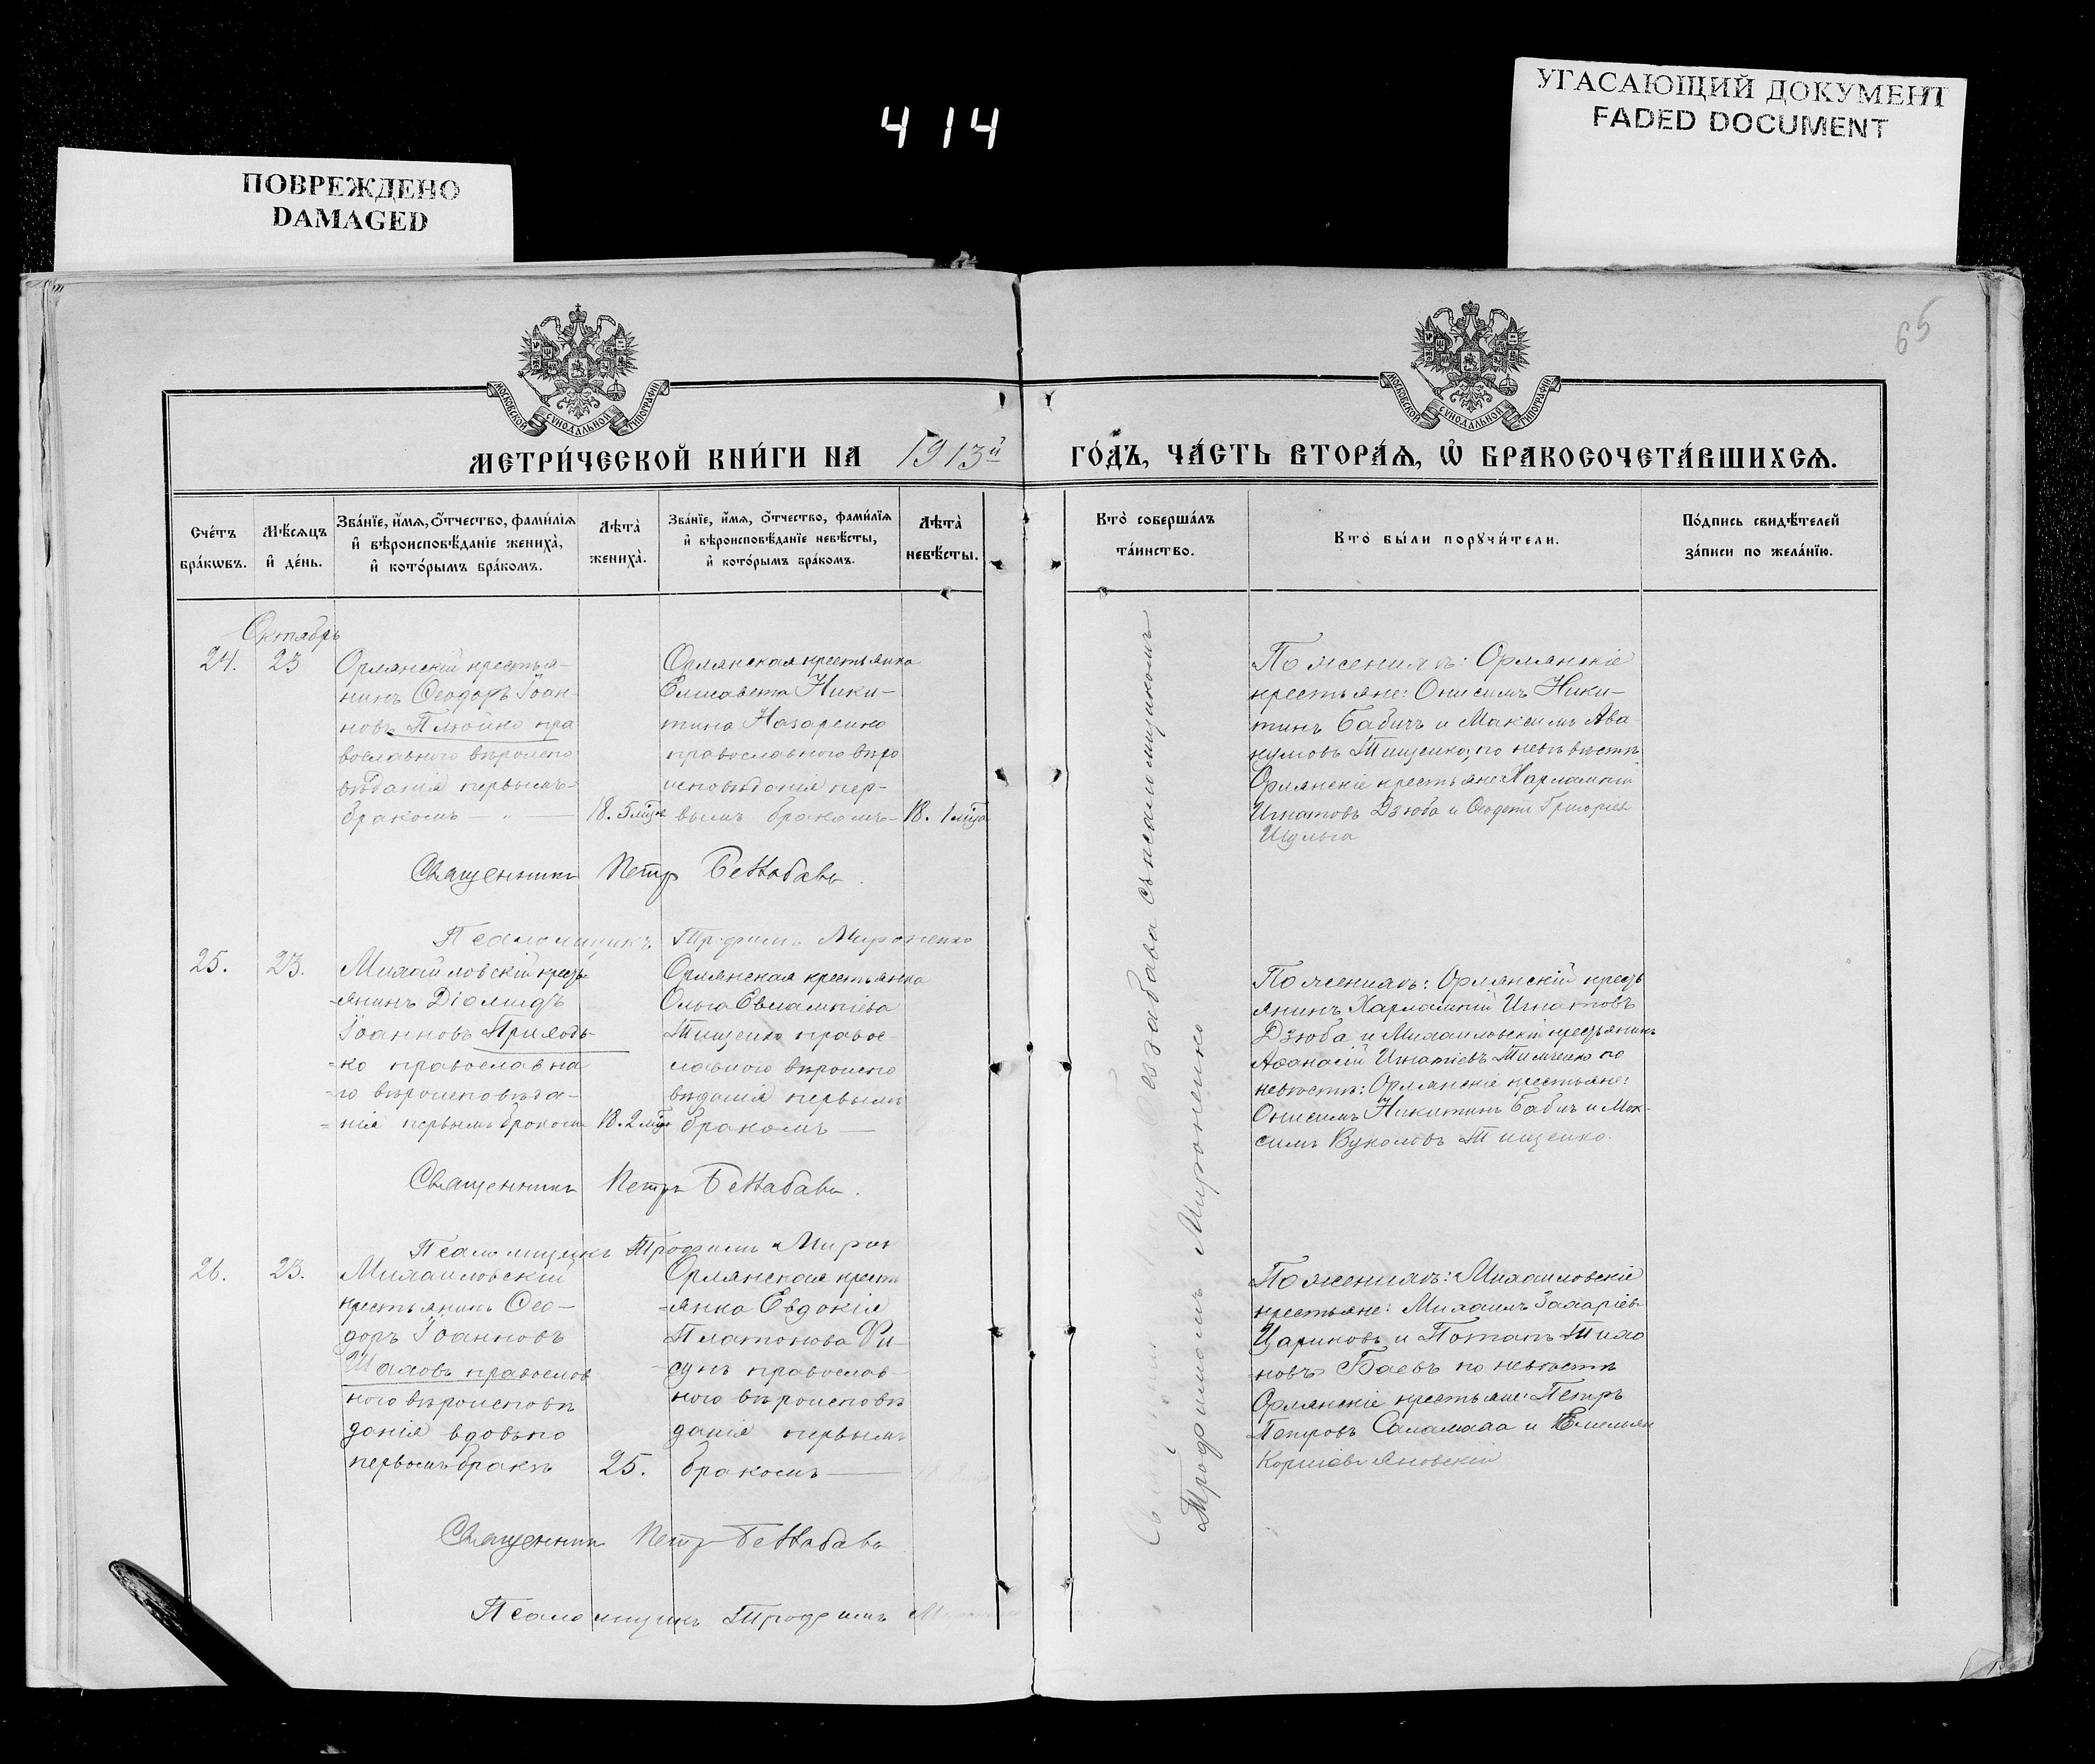 414
УГАСАЮЩИЙ ДОКУМЕНТ
FADED DOCUMENT
ПОВРЕЖДЕНО
DAMAGED
65
МОСКОВСКОЙ СУНОДАЛЬНОЙ ТИПОГРАФІИ
МОСКОВСКОЙ СУНОДАЛЬНОЙ ТИПОГРАФІИ
МЕТРИ́ЧЕСКОЙ КНИ́ГИ НА 1913й
ГО́ДЪ, ЧА́СТЬ ВТОРА́Ѧ, Ѡ҆ БРАКОСОЧЕТА́ВШИХСѦ.
Сче́тъ
бра́кѡвъ.
Мѣ́сѧцъ
и҆ де́нь.
Зва́нїе, и҆́мѧ, ѻ҆́тчество, фами́лїѧ
и҆ вѣроисповѣ́данїе жениха̀,
и҆ кото́рымъ бра́комъ.
Лѣ́та̀
жениха̀.
Зва́нїе, и҆́мѧ, ѻ҆́тчество, фами́лїѧ
и҆ вѣроисповѣ́данїе невѣ́сты,
и҆ кото́рымъ бра́комъ.
Лѣ́та̀
невѣ́сты.
Кто̀ соверша́лъ
та́инство.
Кто̀ бы́ли порꙋчи́тели.
По́дпись свидѣ́телей
за́писи по жела́нїю.
Октябрь
24.
23
Орлянскій крестья-
нинъ Ѳеодоръ Іоан-
новъ Плюйко пра
вославного вѣроиспо
вѣданія первымъ
бракомъ — " —
18. 5 мѣс
Орлянская крестьянка
Елисавета Ники-
тина Назаренко
православного вѣро
исповѣданія пер-
вымъ бракомъ
18. 1 мѣс
По женихѣ: Орлянскіе
крестьяне: Онисимъ Ники-
тинъ Бабичъ и Максимъ Ава
кумовъ Тищенко; по невѣстѣ
Орлянскіе крестьяне Харлампій
Игнатовъ Дзюба и Ѳеодотъ Григорiев
Шульга
Священникъ Петръ
Псаломщикъ Трофимъ Мироненко
25.
23.
Михайловскій кресть
-янинъ Діомидъ
Іоанновъ Приходь-
-ко православна
-го вѣроисповѣда-
=нія первымъ бракомъ
18. 2 мѣс
Орлянская крестьянка
Ольга Евлампіева
Тищенко правос
лавного вѣроиспо
вѣданія первымъ
бракомъ —
По женихѣ: Орлянскій кресть
янинъ Харлампій Игнатовъ
Дзюба и Михайловскій крестьянинъ
Аѳанасій Игнатіевъ Тимченко по
невѣстѣ: Орлянскіе крестьяне:
Онисимъ Никитинъ Бабичъ и Мак-
симъ Вуколовъ Тищенко.
Священникъ Петръ
Псаломщикъ Трофимъ Мирон
26.
23.
Михайловскій
крестьянинъ Ѳео-
доръ Іоанновъ
Шаховъ православ
ного вѣроисповѣ
данія вдовъ по
первомъ бракѣ
25.
Орлянская кресть
-янка Евдокія
Платонова Фи-
-сунъ православ-
ного вѣроисповѣ
данія первымъ
бракомъ —
По женихѣ: Михайловскіе
крестьяне: Михаилъ Захаріев
Цариковъ и Потапъ Тихо
новъ Баевъ по невѣстѣ
Орлянскіе крестьяне: Петръ
Петровъ Саламаха и Емельян
Корніевъ Яновскій
Священникъ Петръ
Псаломщикъ Трофимъ
съ псаломщикомъ
Трофимомъ Мироненко